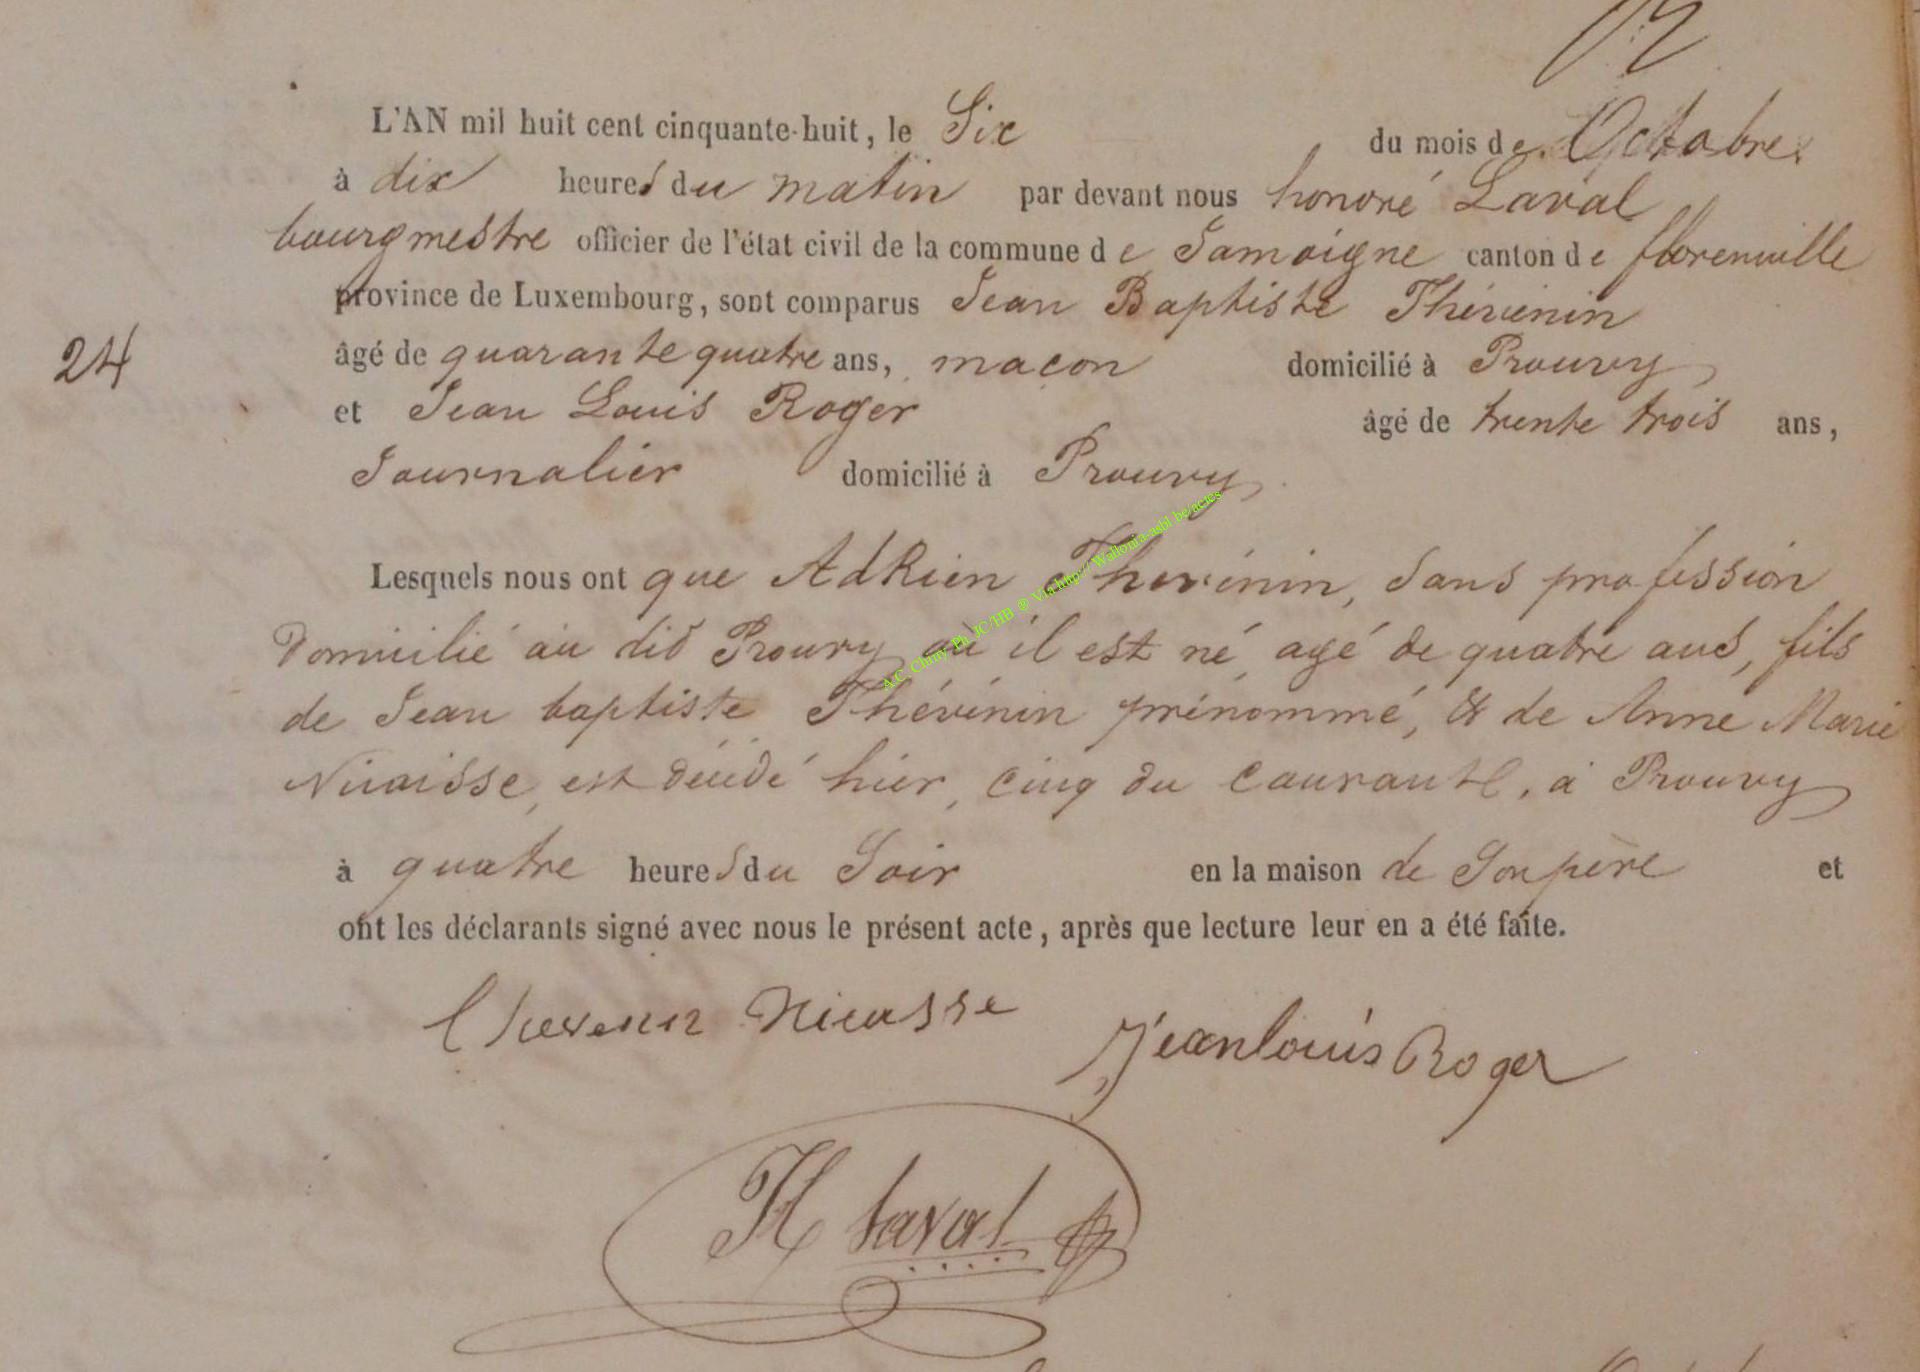 L'AN mil huit cent cinquante-huit, le Six du mois de Octobre
à dix heures du matin par devant nous honoré Laval
bourgmestre officier de l'état civil de la commune de Jamoigne canton de florenville
province de Luxembourg, sont comparus Jean Baptiste Thévénin
24
âgé de quarante quatre ans, maçon domicilié à Prouvy
et Jean Louis Roger âgé de trente trois ans,
Journalier domicilié à Prouvy
Lesquels nous ont que AdRien Thévénin, sans profession
Domicilié au dit Prouvy où il est né, agé de quatre ans, fils
de Jean baptiste Thévénin prénommé, & de Anne Marie
Nicaisse, est décédé hier, cinq du courant, à Prouvy
à quatre heures du Soir en la maison de Son père et
ont les déclarants signé avec nous le présent acte, après que lecture leur en a été faite.
Thevenin Nicasse
Jeanlouis Roger
H Laval
A.C. Chiny Ph JC/HB @ Via http://Wallonia-asbl.be/actes